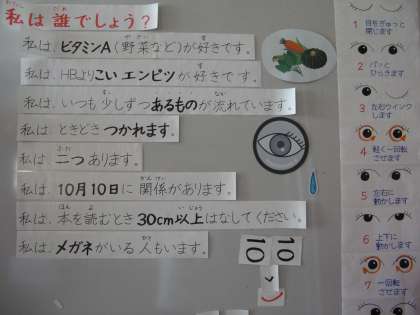 私は誰でしょう？
私は、ビタミンA(野菜など)が好きです。
私は、HBよりこいエンピツが好きです。
私は、いつも少しずつあるものが流れています。
私は、ときどきつかれます。
私は、二つあります。
私は、10月10日に関係があります。
私は、本を読むとき30cm以上はなしてください。
私は、メガネがいる人もいます。
10
10
1 目をぎゅっと
閉じます
2 パッと
ひらきます
3 左右ウインク
します
4 軽く一回転
させます
5 左右に
動かします
6 上下に
動かします
7 一回転
させます